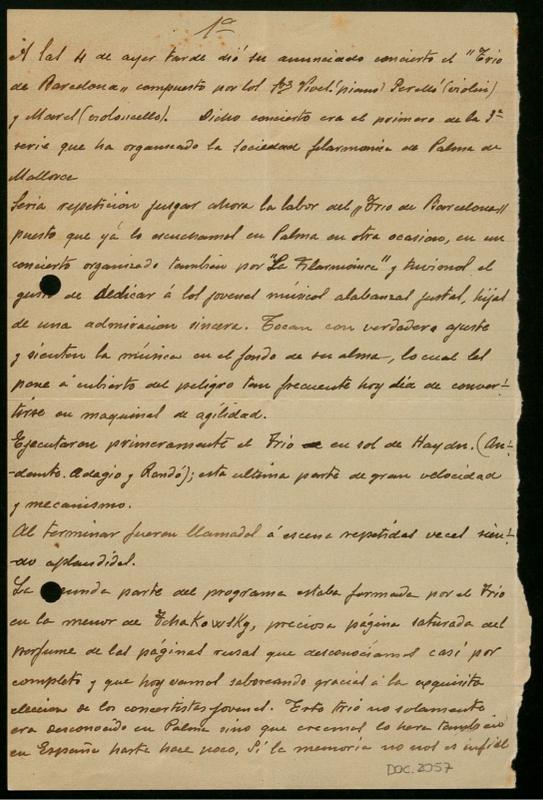 1ª
A las 4 de ayer tarde dió su anunciado concierto el "Trio
de Barcelona" compuesto por los Srs Vives (piano) Perelló (violin)
y Marés (violoncello). Dicho concierto era el primero de la 3ª
serie que ha organizado la Sociedad filarmonica de Palma de
Mallorca
Seria repetición juzgar ahora la labor del "Trio de Barcelona"
puesto que yá lo escuchamos en Palma en otra ocasion, en un
concierto organizado tambien por "La Filarmónica" y tuvimos el
gusto de dedicar á los jovenes músicos alabanzas justas, hijas
de una admiracion sincera. Tocan con verdadero ajuste
y sienten la música en el fondo de su alma, lo cual les
pone á cubierto del peligro tan frecuente hoy dia de conver-
tirse en maquinas de agilidad.
Ejecutaron primeramente el Trio en sol de Haydn. (An-
-dante. Adagio y Rondó); esta ultima parte de gran velocidad
y mecanismo.
Al terminar fueron llamados á escena repetidas veces sien-
-do aplaudidos.
La segunda parte del programa estaba formada por el Trio
en la menor de Tchakowsky, preciosa página saturada del
perfume de las páginas rusas que desconociamos casi por
completo y que hoy vamos saboreando gracias á la exquisita
eleccion de los concertistas jovenes. Este trio no solamente
era desconocido en Palma sino que creemos lo hera tambien
en España hasta hace poco, Si la memoria no nos es infiel
DOC. 2057